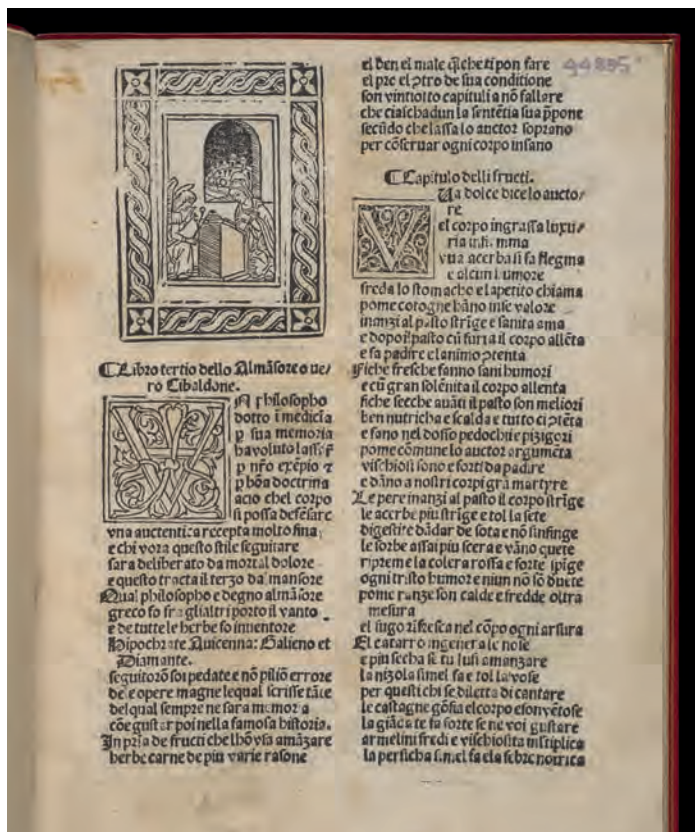 ¶ Libro tertio dello Almãsore o ue/
ro Cibaldone.
VN philosopho
dotto ĩ medicĩa
ꝑ sua memoria
ha voluto
ꝑ nr̃o exẽpio ⁊
ꝑ bõa doctrina
acio chel corpo
si possa defẽsare
vna auctentica recepta molto fina
e chi vora questo stile seguitare
sara deliberato da mortal dolore
e questo tracta il terzo da mansore
Qual philosopho e degno almãsore
greco fo fra glialtri porto il vanto
e de tutte le herbe fo inuentore
Hipochrate Auicenna: Galieno et
Diamante.
seguitorõ soi pedate e nõ piliõ errore
de e opere magne lequal scrisse tãte
del qual sempre ne sara memoria
cõe gustar poi nella famosa historia.
In pr̃ia de fructi che lhõ vsa amãzare
herbe carne de piu varie rasone
el ben el male q̃l che ti pon fare
el pre el ↄtro de sua conditione
son vintiotto capituli a nõ fallare
che ciaschadun la sentẽtia sua ꝓpone
secũdo che lassa lo auctor soprano
per cõseruar ogni corpo insano
44835
¶ Capitulo delli fructi.
VUa dolce dice lo aucto/
re
el corpo ingrassa luxu/
ria infiamma
vua acerba si fa flegma
e alcun humore
freda lo stomacho e lapetito chiama
pome cotogne hãno in se valore
inanzi al pasto strĩge e sanita ama
e dopoi il pasto cũ furia il corpo allẽta
e fa padire e lanimo ↄtenta
Fiche fresche fanno sani humori
e cũ gran solẽnita il corpo allenta
fiche secche auãti il pasto son meliori
ben nutricha e scalda e tutto ci ↄtẽta
e fano nel dosso pedochi e pizigori
pome cõmune lo auctor argumẽta
vischiosi sono e forti da padire
e dãno a nostri corpi gra martyre
Le pere inanzi al pasto il corpo strĩge
le acerbe piu strĩge e tol la sete
digestire dãdar de sota e nõ sinfinge
le sorbe assai piu secra e vãno quete
ripreme la colera rossa e forte spĩge
ogni tristo humore e niun nõ so
pome ranze son calde e fredde oltra
mesura
el sugo rĩfresca nel cõpo ogni arsura
El catarro ingenera le nose
e piu secha se tu lusi amanzare
la nizola simel fa e tol la vose
per questi chi se diletta di cantare
le castagne gõfia el corpo e son vẽtose
la giãda te fa forte se ne voi gustare
armelini fredi e vischiosita mltiplica
la persicha simel fa e la febre notrica